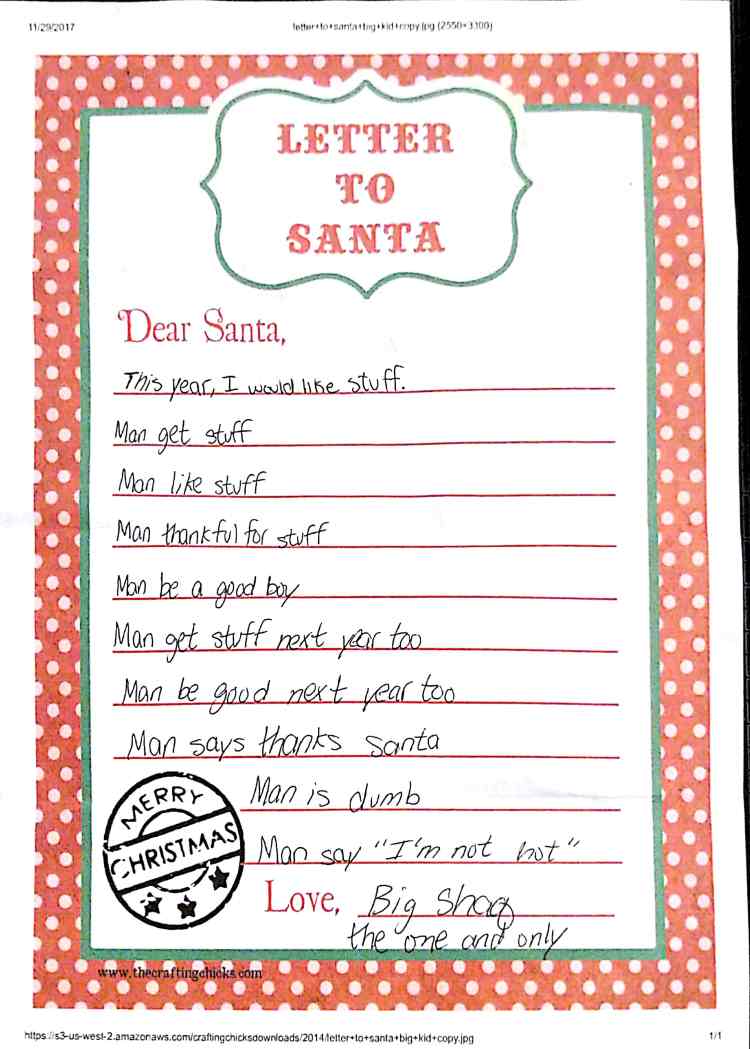 11/29/2017
letter+to+santa+big+kid+copy.jpg (2550×3300)
LETTER
TO
SANTA
Dear Santa,
This year, I would like stuff.
Man get stuff
Man like stuff
Man thankful for stuff
Man be a good boy
Man get stuff next year too
Man be good next year too
Man says thanks santa
Man is dumb
Man say "I'm not hot"
MERRY
CHRISTMAS
Love, Big Shaq
the one and only
www.thecraftingchicks.com
https://s3-us-west-2.amazonaws.com/craftingchicksdownloads/2014/letter+to+santa+big+kid+copy.jpg
1/1